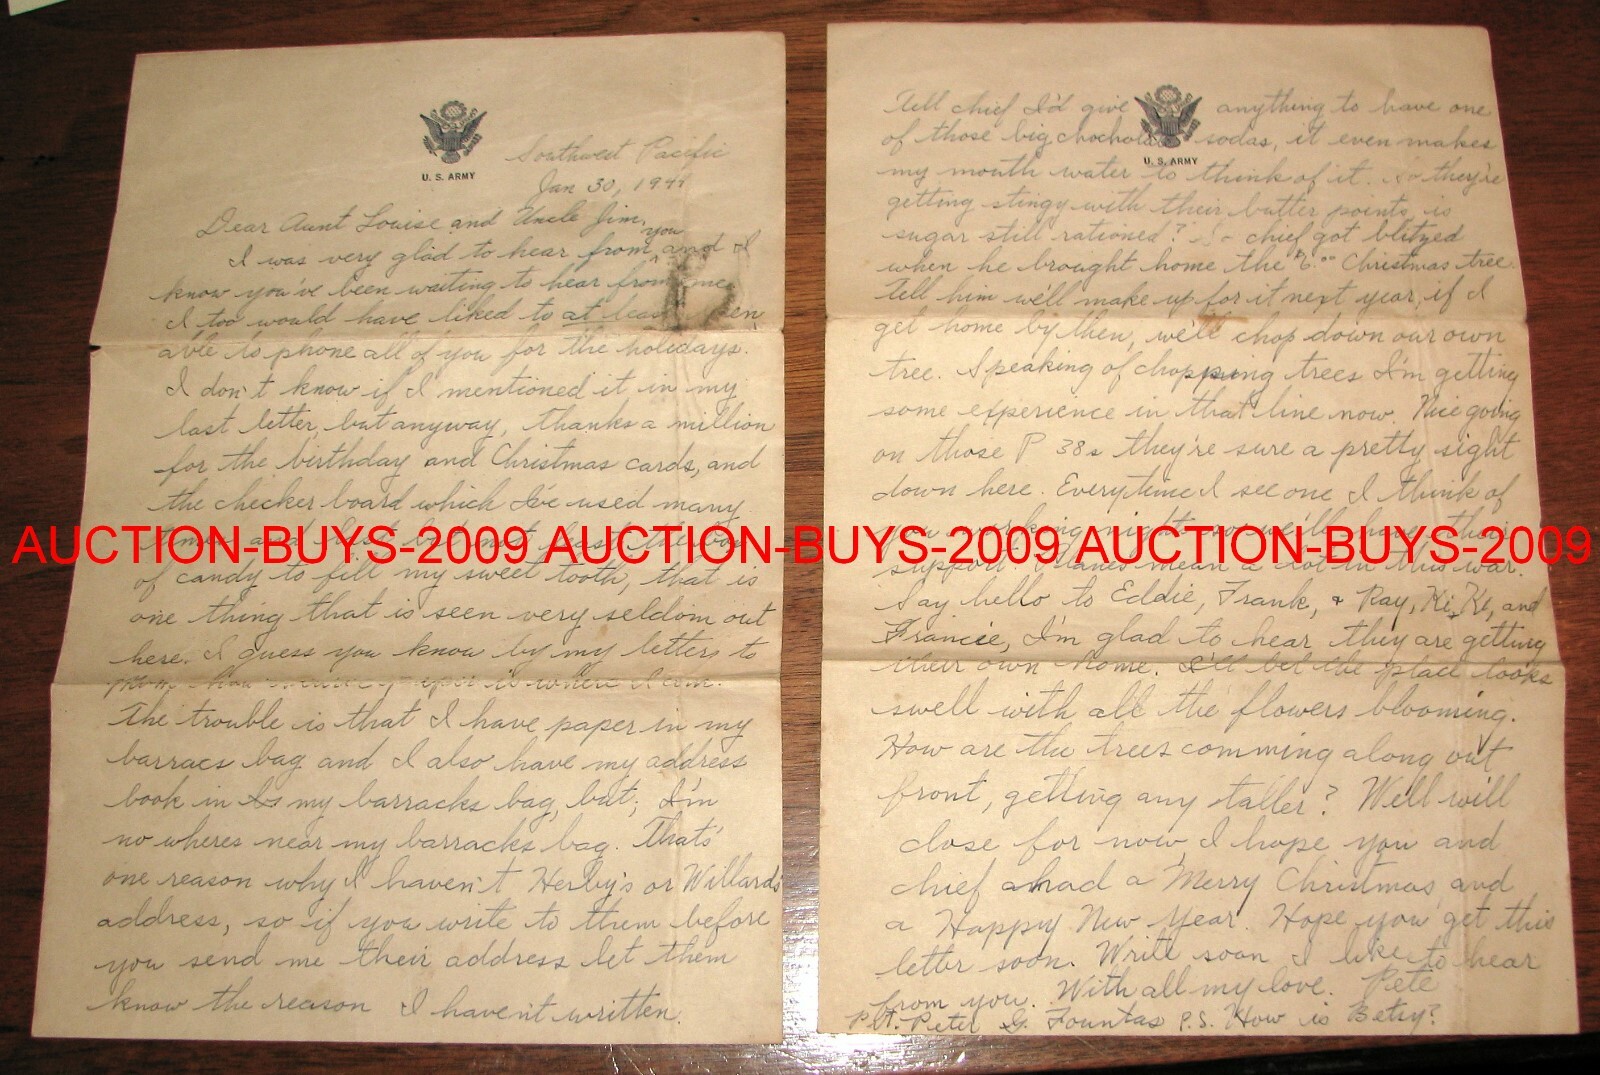 U. S. ARMY
Southwest Pacific
Jan 30, 1944
Dear Aunt Louise and Uncle Jim,
I was very glad to hear from you and I
know you've been waiting to hear from me
I too would have liked to at least been
able to phone all of you for the holidays.
I don't know if I mentioned it in my
last letter, but anyway, thanks a million
for the birthday and Christmas cards, and
the checker board which I've used many
times and last but not least the box
AUCTION-BUYS-2009 AUCTION-BUYS-2009 AUCTION-BUYS-2009
of candy to fill my sweet tooth, that is
one thing that is seen very seldom out
here. I guess you know by my letters to
Mom how scarce paper is where I am.
The trouble is that I have paper in my
barracs bag and I also have my address
book in my barracks bag, but, I'm
no wheres near my barracks bag. That's
one reason why I haven't Herby's or Willard's
address, so if you write to them before
you send me their address let them
know the reason I haven't written.
Tell chief I'd give anything to have one
U. S. ARMY
of those big chochola sodas, it even makes
my mouth water to think of it. So they're
getting stingy with their butter points, is
sugar still rationed? So chief got blitzed
when he brought home the Christmas tree.
Tell him we'll make up for it next year, if I
get home by then, we'll chop down our own
tree. Speaking of chopping trees I'm getting
some experience in that line now. Nice going
on those P 38s they're sure a pretty sight
down here. Everytime I see one I think of
you working nights so we'll have their
support. Planes mean a lot in this war.
Say hello to Eddie, Frank, + Ray, Ki Ki, and
Francie, I'm glad to hear they are getting
their own home. I'll bet the place looks
swell with all the flowers blooming.
How are the trees comming along out
front, getting any taller? Well will
close for now, I hope you and
chief had a Merry Christmas and
a Happy New Year. Hope you get this
letter soon. Write soon I like to hear
from you. With all my love. Pete
Pvt. Peter G. Fountas P.S. How is Betsy?